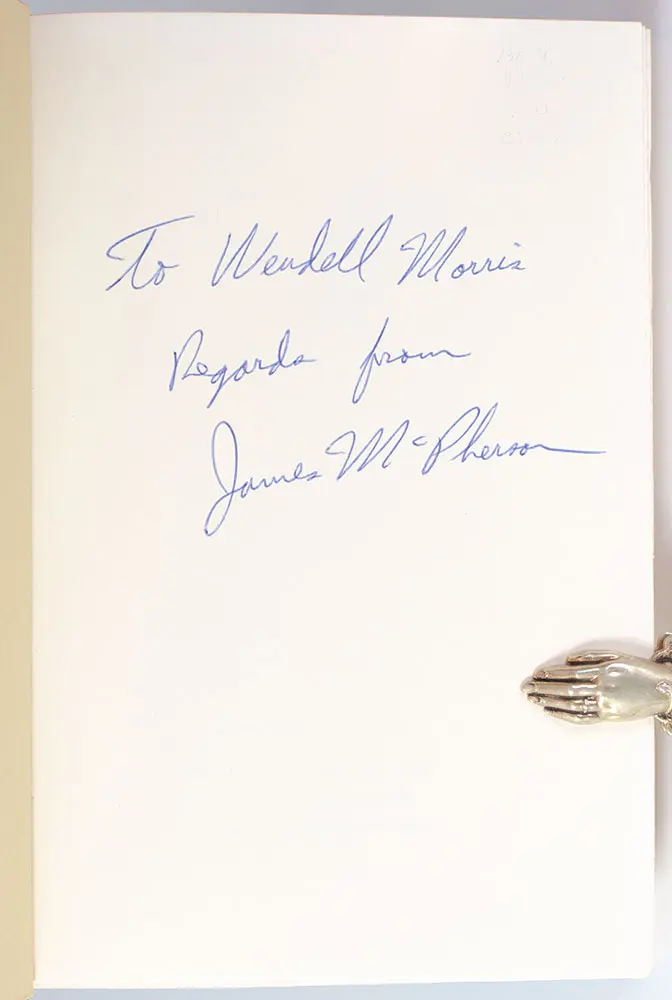 To Wendell Morris
Regards from
James McPherson